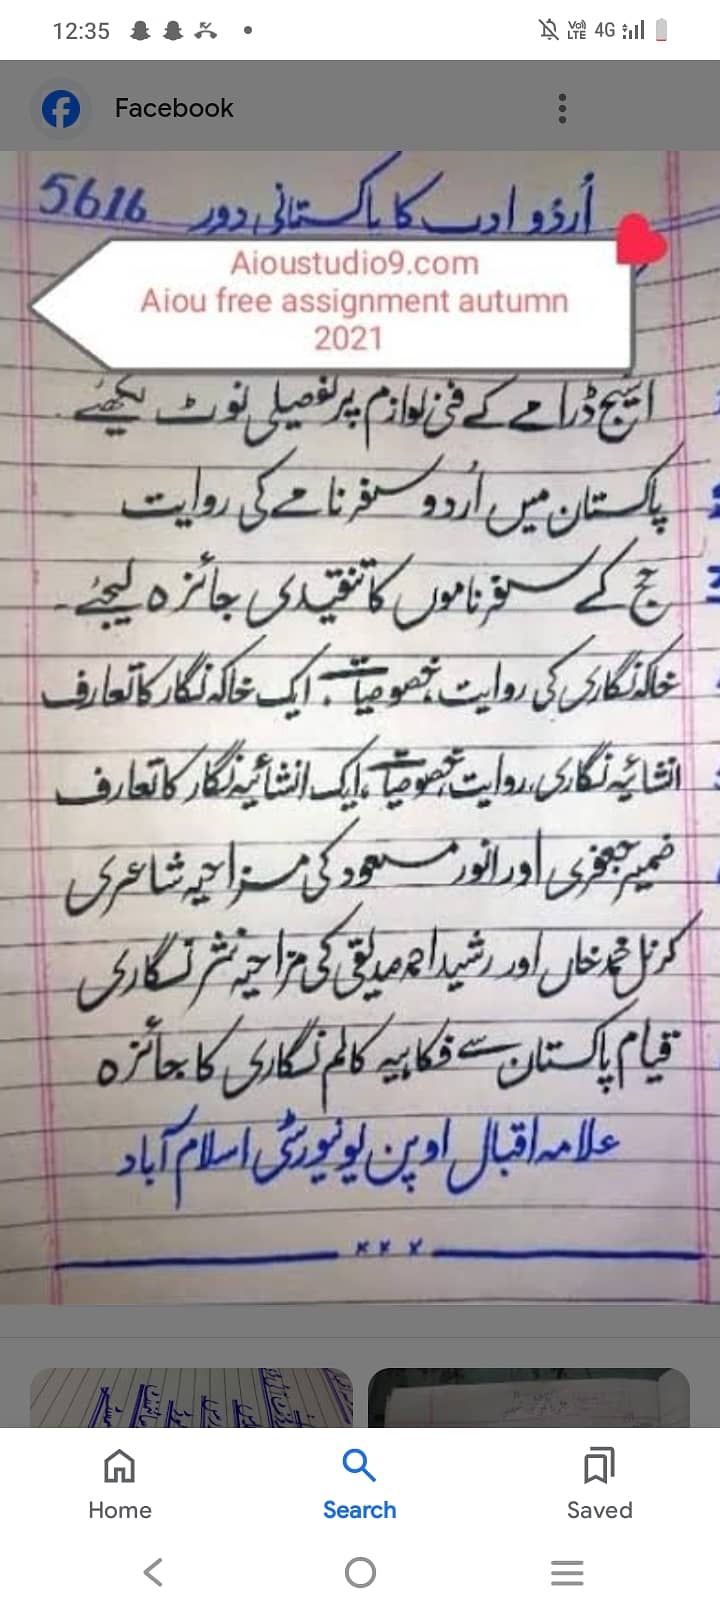 12:35
VoLTE 4G
Facebook
اُردو ادب کا پاکستانی دور 5616
Aioustudio9.com
Aiou free assignment autumn
2021
اسٹیج ڈرامے کے فنی لوازم پر تفصیلی نوٹ لکھئے۔
پاکستان میں اُردو سفر نامے کی روایت
حج کے سفر ناموں کا تنقیدی جائزہ لیجئے۔
خاکہ نگاری کی روایت، خصوصیات، ایک خاکہ نگار کا تعارف
انشائیہ نگاری، روایت، خصوصیات، ایک انشائیہ نگار کا تعارف
ضمیر جعفری اور انور مسعود کی مزاحیہ شاعری
کرنل محمد خاں اور رشید احمد صدیقی کی مزاحیہ نثر نگاری
قیام پاکستان سے فکاہیہ کالم نگاری کا جائزہ
علامہ اقبال اوپن یونیورسٹی اسلام آباد
Home Search Saved